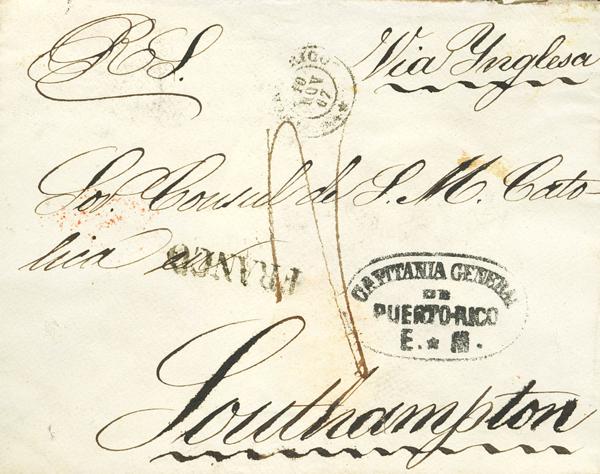 R S.
Via Ynglesa
RICO
10
NOV
67
Sor Consul de S. M. Cato-
lica en
FRANCO
CAPITANIA GENERAL
DE
PUERTO-RICO
E. M.
Southampton